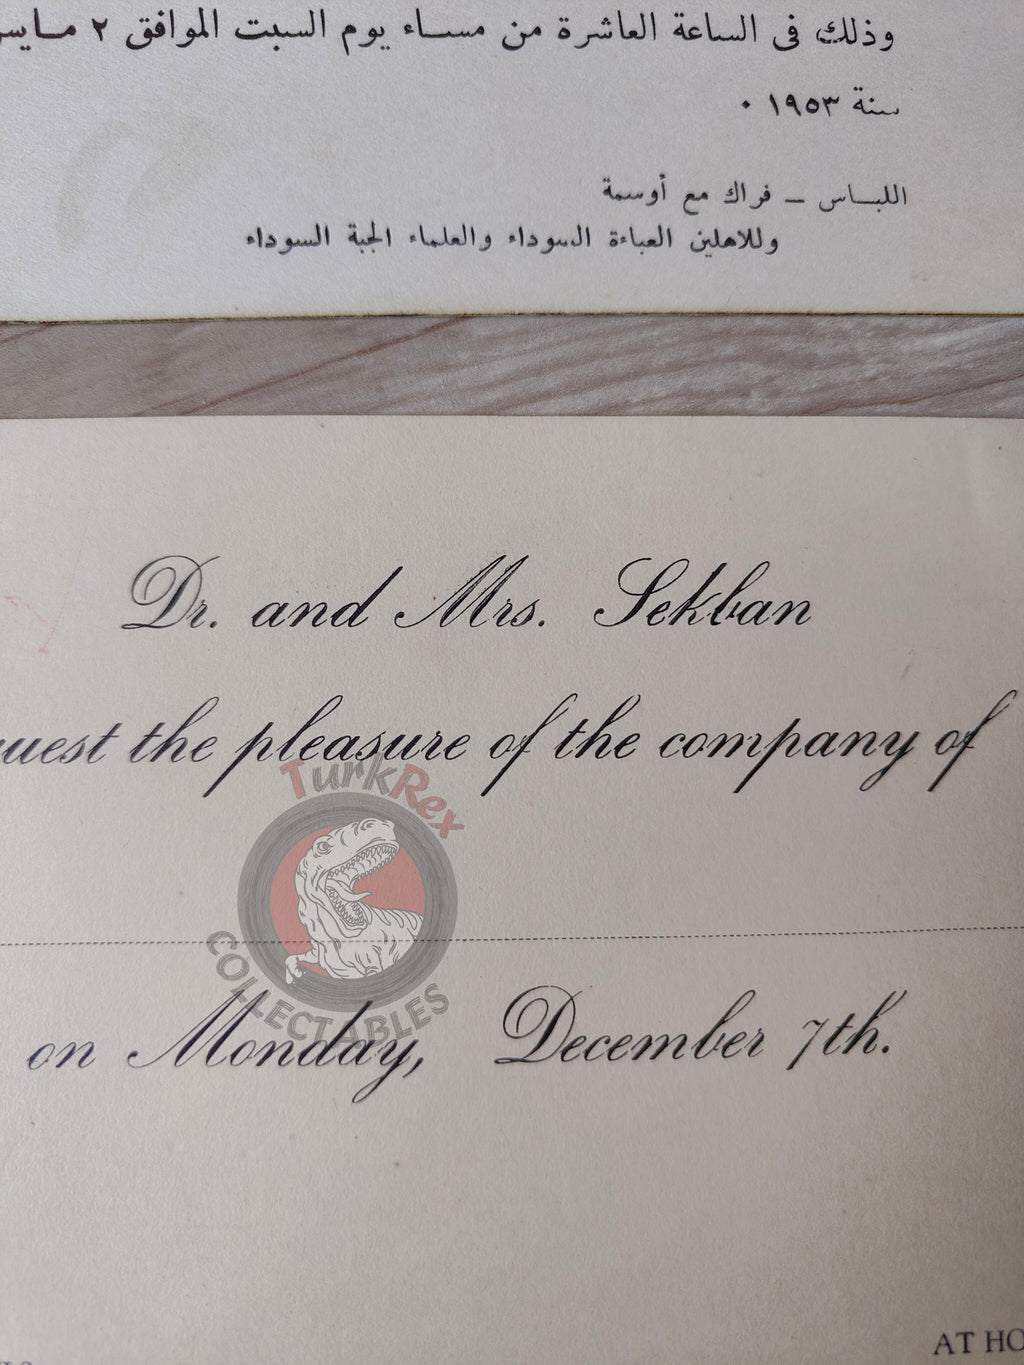 وذلك فى الساعة العاشرة من مساء يوم السبت الموافق ٢ مايس
سنة ١٩٥٣ .
اللباس — فراك مع أوسمة
وللاهلين العباءة السوداء والعلماء الجبة السوداء
Dr. and Mrs. Sekban
uest the pleasure of the company of
TurkRex
COLLECTABLES
on Monday, December 7th.
AT HO